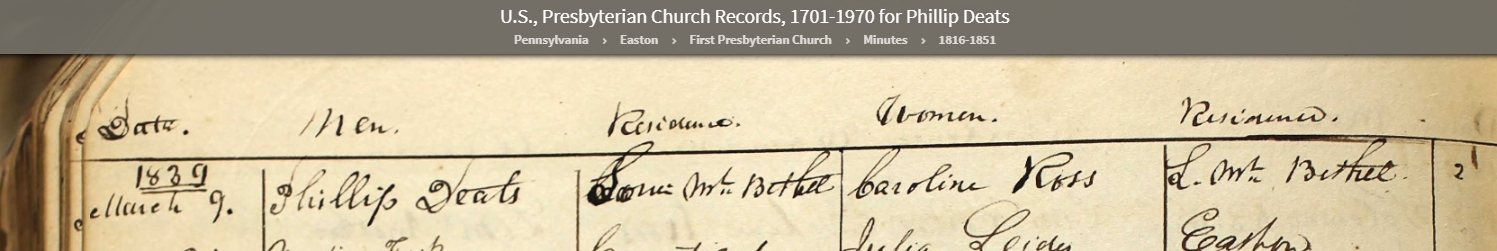 U.S., Presbyterian Church Records, 1701-1970 for Phillip Deats
Pennsylvania > Easton > First Presbyterian Church > Minutes > 1816-1851
Date. Men. Residence. Women. Residence.
1839
March 9. Phillip Deats Mt Bethel Caroline Ross L. Mt. Bethel. 2
Julia Easton